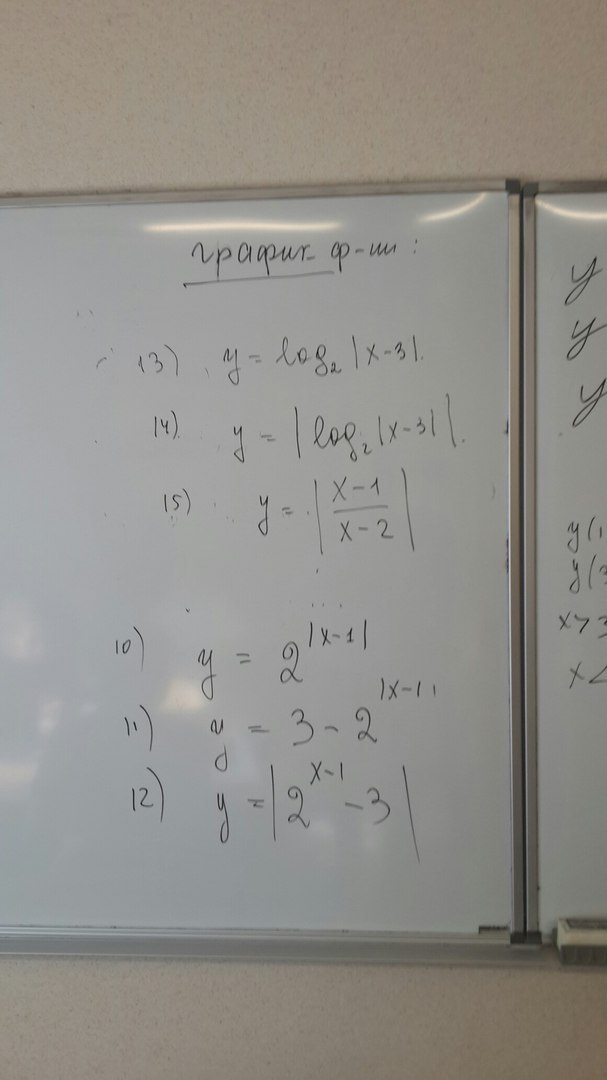 график ф-ии :
13) y = log₂ |x-3|.
14) y = | log₂ |x-3| |.
15) y = | (x-1)/(x-2) |
10) y = 2^|x-1|
11) y = 3 - 2^|x-1|
12) y = | 2^(x-1) - 3 |
y
y
y
y(1
y(3
x>3
x<